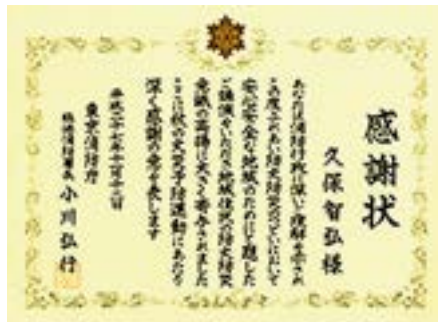 感謝状
久保智弘様
あなたは消防行政に深い理解を示され
この度ふれあい防火防災のつどいにおいて
安心安全な地域のためにと題した
ご講演をいただき地域住民の防火防災
意識の高揚に大きく寄与されました
ここに秋の火災予防運動にあたり
深く感謝の意を表します
平成二十七年十一月十二日
東京消防庁
消防署長 小川弘行